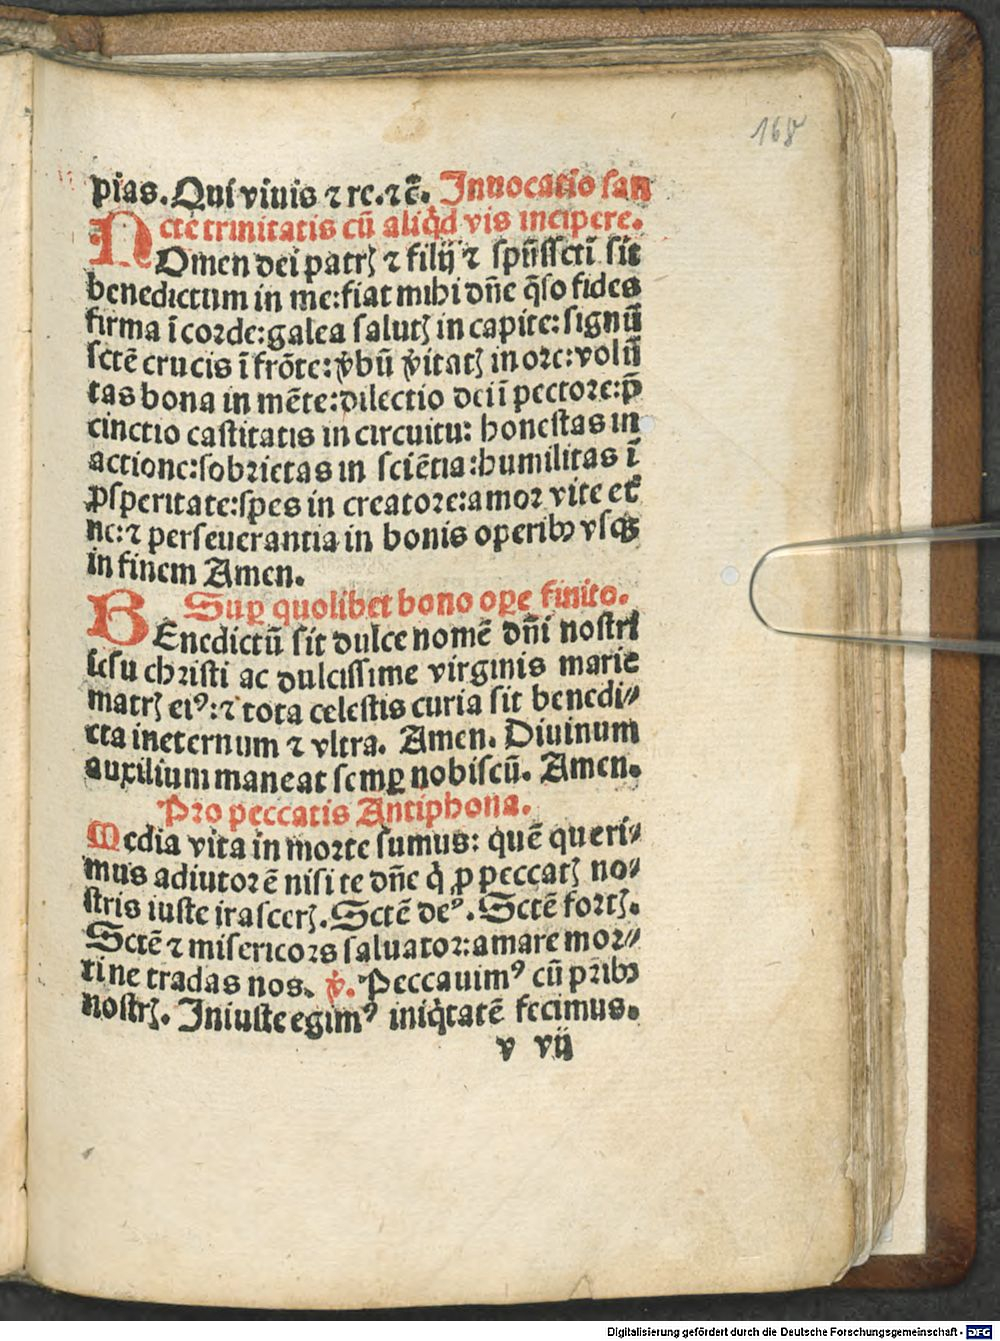 168
pias. Qui viuis ⁊ re. ⁊c̄. Innocatio san
cte trinitatis cū aliq̇d vis incipere.
NOmen dei patrꝭ ⁊ filij ⁊ spūssctī sit
benedictum in me: fiat mihi dn̄e q̄so fides
firma ī corde: galea salutꝭ in capite: signū
sctē crucis ī frōte: v̇bū v̇itatꝭ in ore: volū
tas bona in mēte: dilectio dei ī pectore: p̄
cinctio castitatis in circuitu: honestas in
actione: sobrietas in sciētia: humilitas ī
ꝓsperitate: spes in creatore: amor vite et̄
ne: ⁊ perseuerantia in bonis operibꝰ vsqꝫ
in finem Amen.
Suꝑ quolibet bono oꝑe finito.
BEnedictū sit dulce nomē dn̄i nostri
iesu christi ac dulcissime virginis marie
matrꝭ eiꝰ: ⁊ tota celestis curia sit benedi⸗
cta in eternum ⁊ vltra. Amen. Diuinum
auxilium maneat semꝑ nobiscū. Amen.
Pro peccatis Antiphona.
Media vita in morte sumus: quē queri⸗
mus adiutorē nisi te dn̄e q̇ ꝓ peccatꝭ no⸗
stris iuste irascerꝭ. Sctē deꝰ. Sctē fortꝭ.
Sctē ⁊ misericors saluator: amare mor⸗
ti ne tradas nos. ℣. Peccauimꝰ cū pr̄ibꝰ
nostrꝭ. Iniuste egimꝰ iniq̇tatē fecimus.
v vij
Digitalisierung gefördert durch die Deutsche Forschungsgemeinschaft - DFG